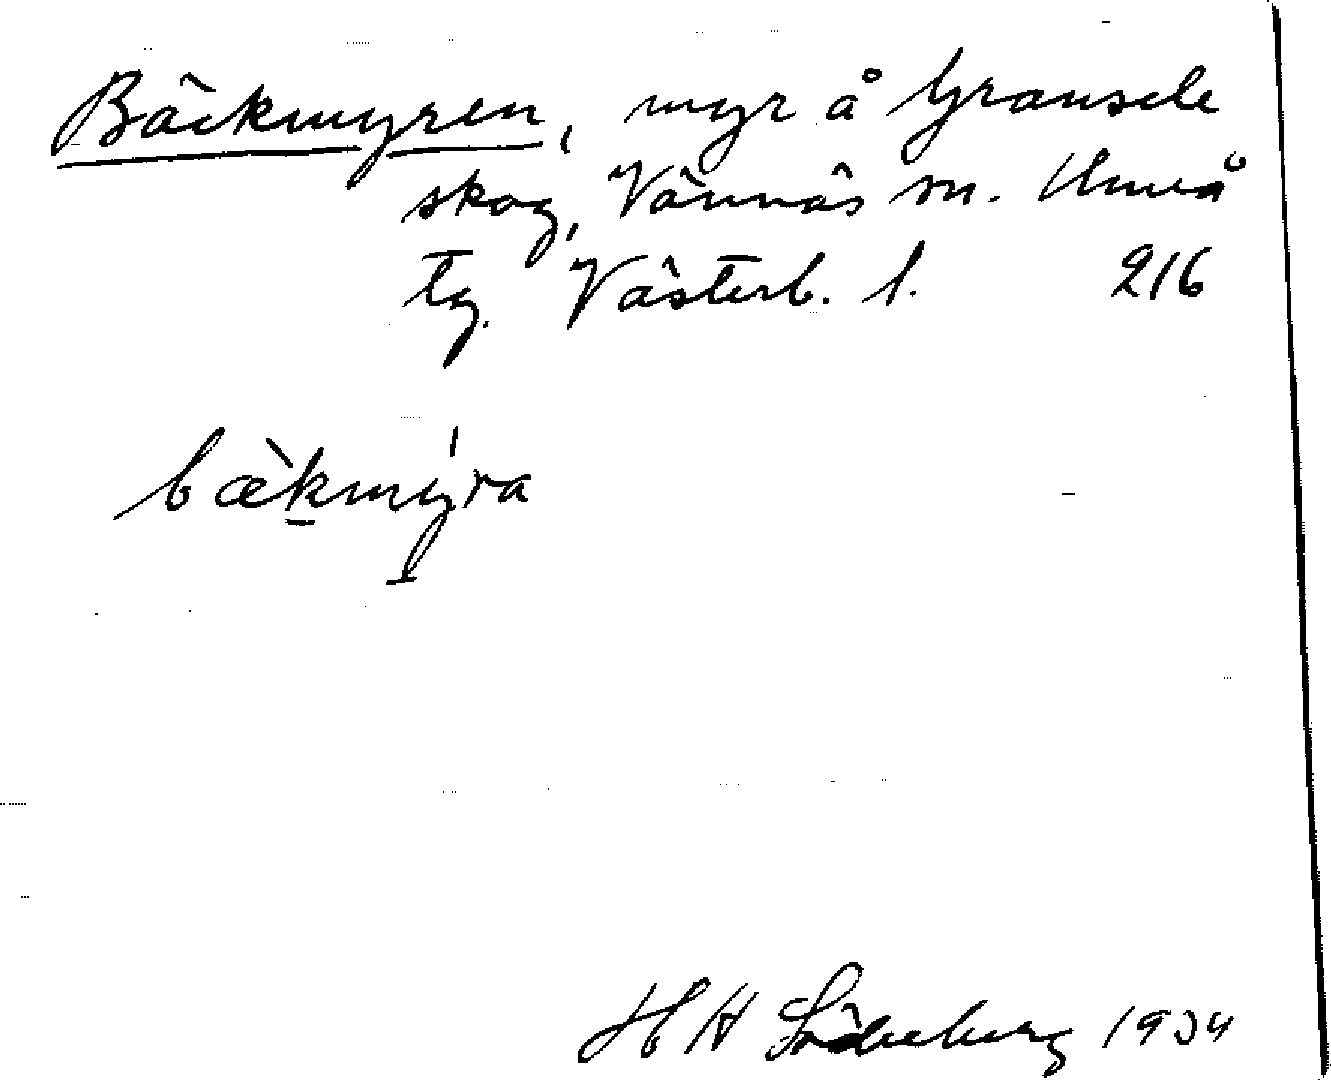 Bäckmyren, myr å Gransele
skog, Vännäs sn. Umeå
tg. Västerb. l. 216
bæ̀kmýra
H H Söderberg 1934